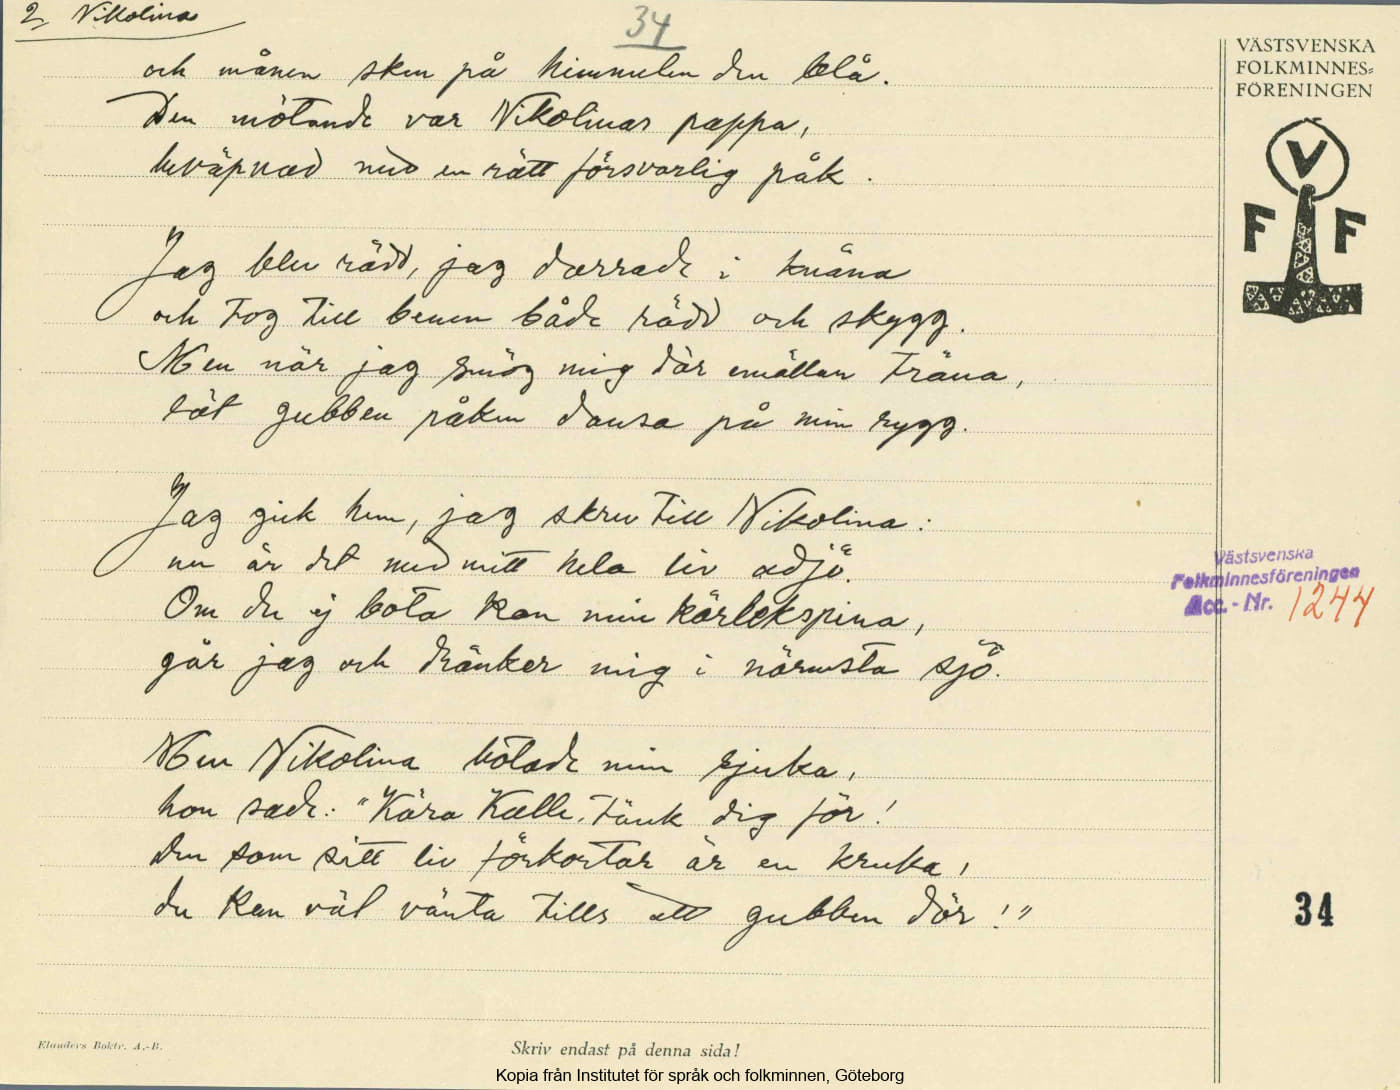 2, Nikolina
34
och månen sken på himmelen den blå.
Den mötande var Nikolinas pappa,
beväpnad med en rätt försvarlig påk.
Jag blev rädd, jag darrade i knäna
och tog till benen både rädd och skygg.
Men när jag smög mig där emällan träna,
lät gubben påken dansa på min rygg.
Jag gick hem, jag skrev till Nikolina:
nu är det med mitt hela liv adjö.
Om du ej bota kan min kärlekspina,
går jag och dränker mig i närmsta sjö.
Men Nikolina botade min sjuka,
hon sade: "Kära Kalle, tänk dig för!
Den som sitt liv förkortar är en kruka,
du kan väl vänta tills att gubben dör!"
VÄSTSVENSKA
FOLKMINNES=
FÖRENINGEN
V
F F
Västsvenska
Folkminnesföreningen
Acc.-Nr. 1244
34
Elanders Boktr. A.-B.
Skriv endast på denna sida!
Kopia från Institutet för språk och folkminnen, Göteborg